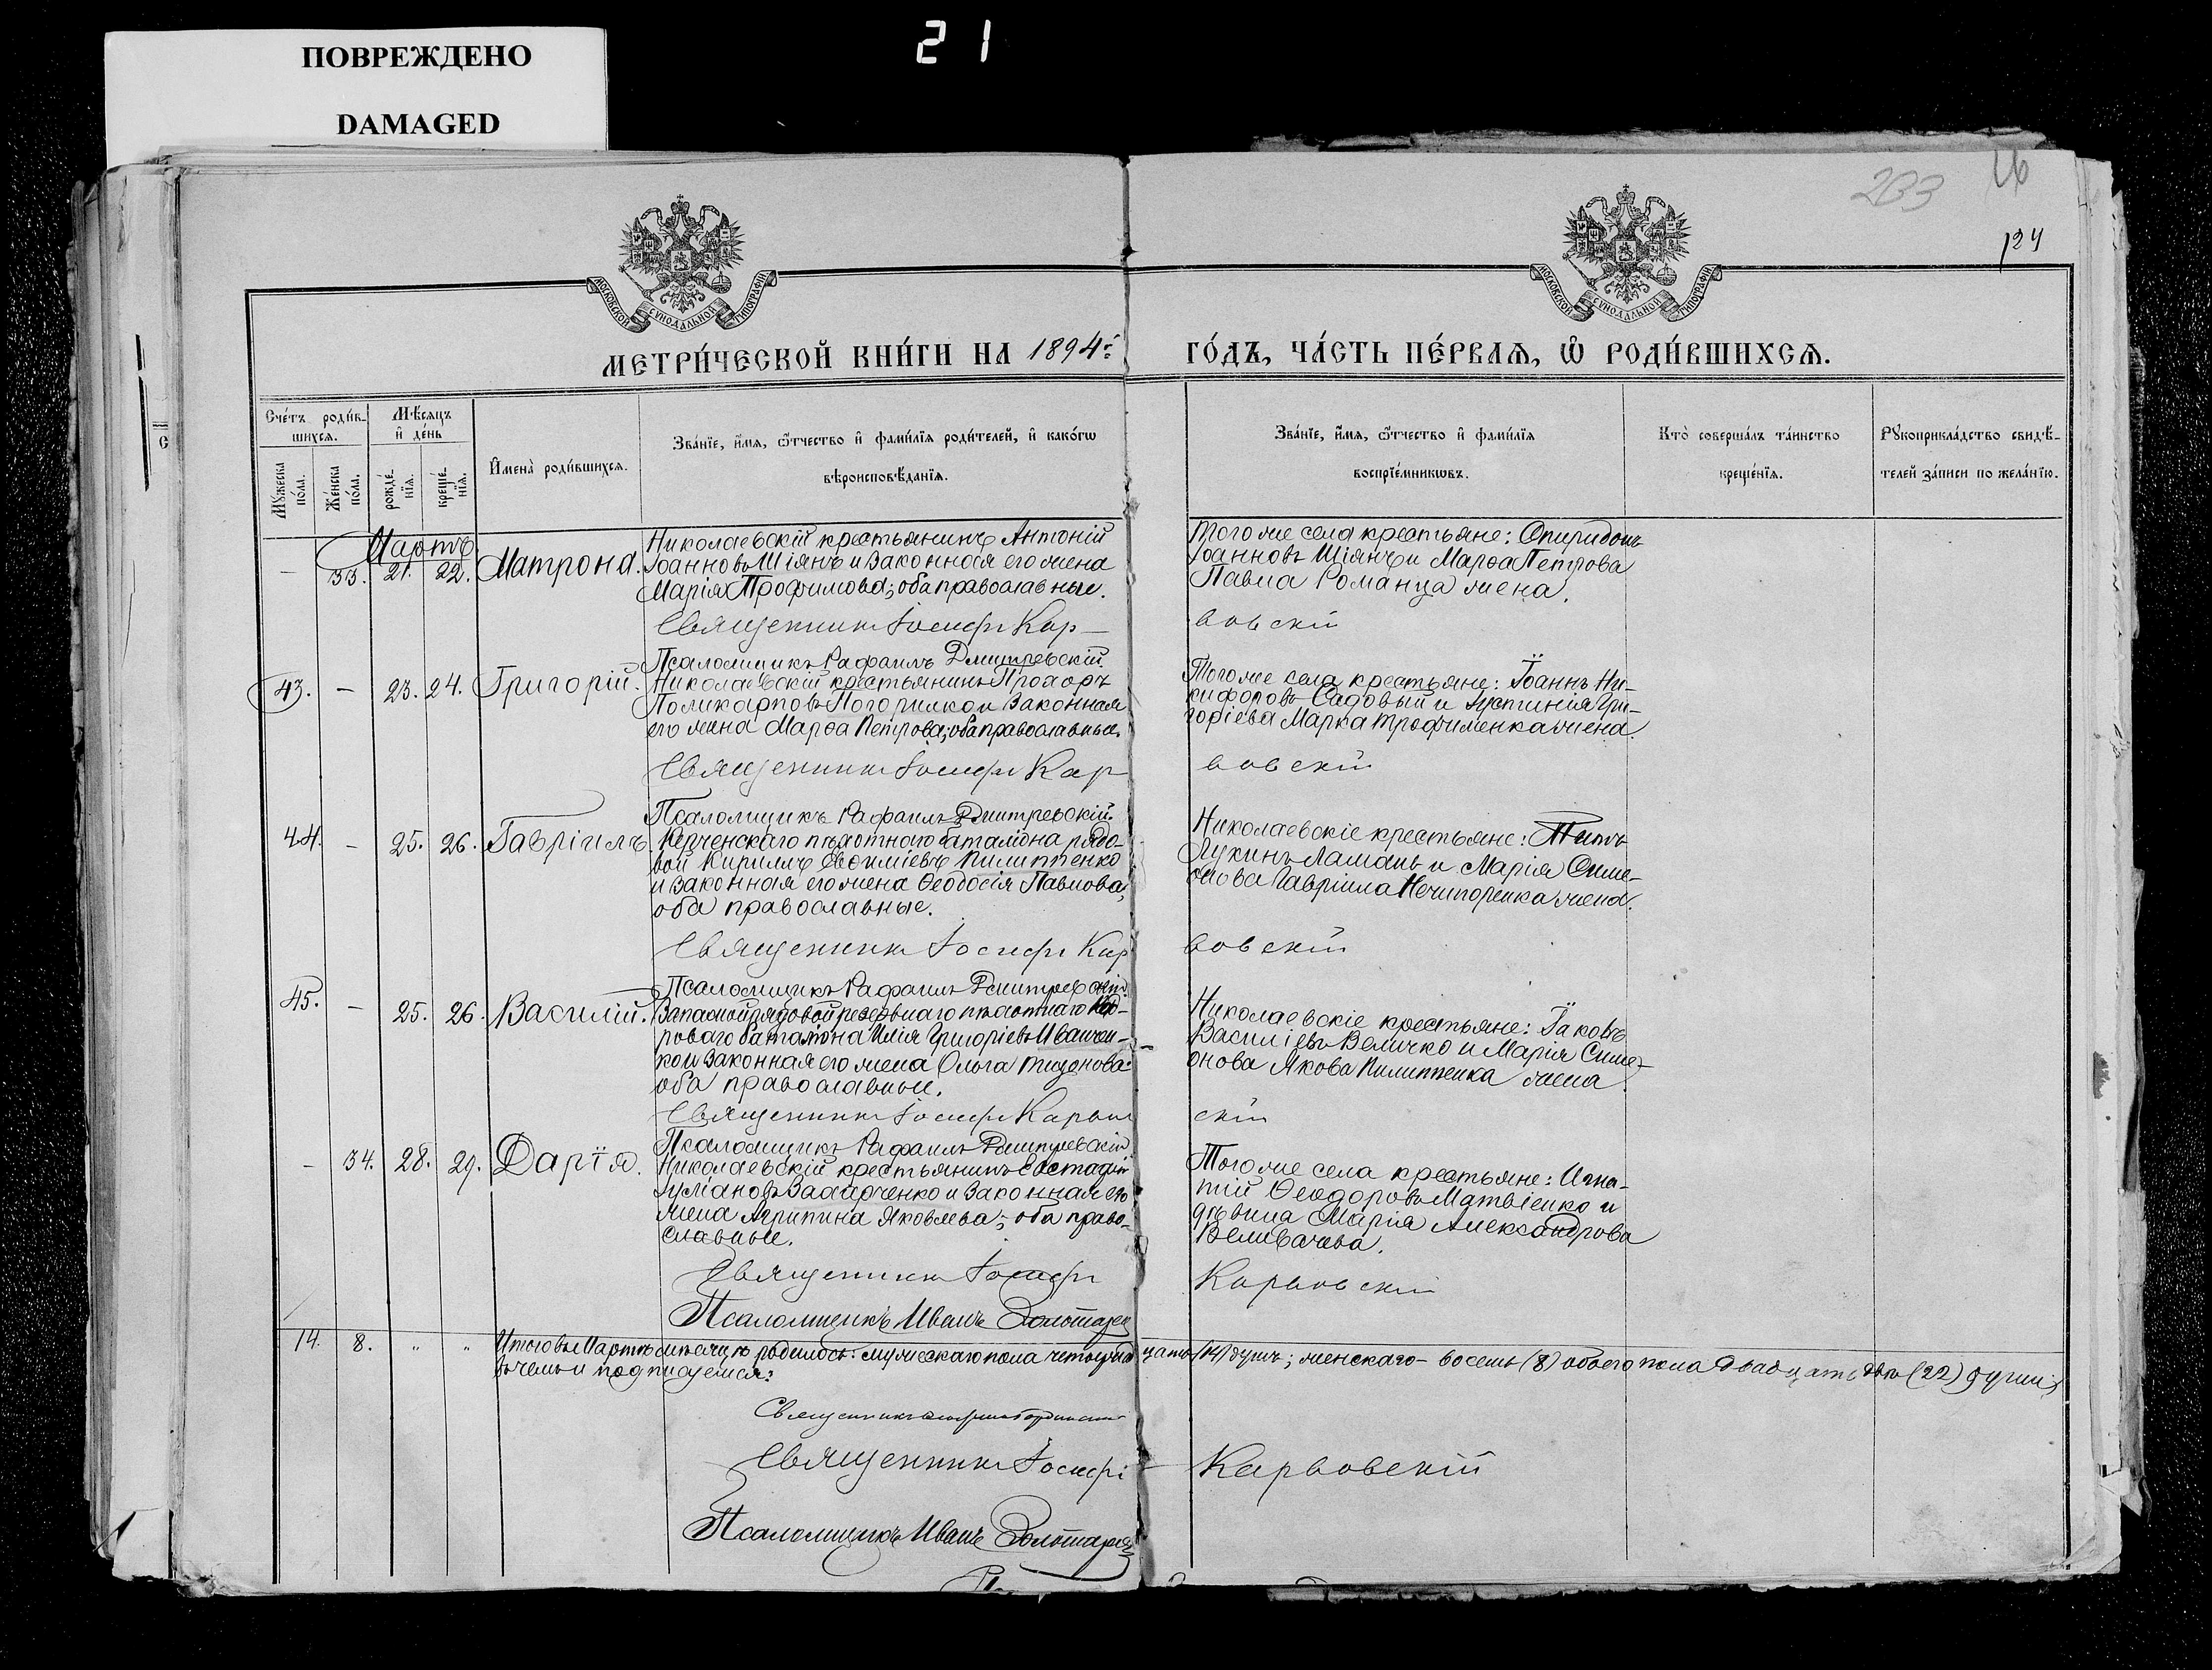 ПОВРЕЖДЕНО
DAMAGED
21
233
124
МОСКОВСКОЙ СУНОДАЛЬНОЙ ТИПОГРАФІИ
МОСКОВСКОЙ СУНОДАЛЬНОЙ ТИПОГРАФІИ
МЕТРИ́ЧЕСКОЙ КНИ́ГИ НА 1894й
ГО́ДЪ, ЧА́СТЬ ПЕ́РВАЯ, Ѡ РОДИ́ВШИХСЯ.
Сче́тъ роди́в-
шихся.
Мѣсяцъ
и де́нь
Му́жеска по́ла.
Же́нска по́ла.
рожде́-
нія.
креще́-
нія.
Имена̀ роди́вшихся.
Зва́ніе, и́мя, ѻ́тчество и фами́лія роди́телей, и како́гѡ
вѣроисповѣ́данія.
Зва́ніе, и́мя, ѻ́тчество и фами́лія
воспріе́мникѡвъ.
Кто̀ соверша́лъ та́инство
креще́нія.
Рукоприкла́дство свидѣ́-
телей за́писи по жела́нію.
Мартъ
— 33. 21. 22. Матрона.
Николаевскій крестьянинъ Антоній
Іоанновъ Шіянъ и законная его жена
Марія Трофимова; оба православные.
Того же села крестьяне: Спиридонъ
Іоанновъ Шіянъ и Марѳа Петрова
Павла Романца жена.
Священникъ Іосифъ Кар—
вовскій
Псаломщикъ Рафаилъ Дмитревскій.
43. — 23. 24. Григорій.
Николаевскій крестьянинъ Прохоръ
Поликарповъ Погорилко и законная
его жена Марѳа Петрова; оба православные.
Того же села крестьяне: Іоаннъ Ни-
кифоровъ Садовый и Іустинія Гри-
горіева Марка Трофименка жена.
Священникъ Іосифъ Кар
вовскій
Псаломщикъ Рафаилъ Дмитревскій.
44. — 25. 26. Гавріилъ.
Керченскаго пѣхотнаго баталіона рядо-
вой Кириллъ Евѳиміевъ Пилипенко
и законная его жена Ѳеодосія Павлова,
оба православные.
Николаевскіе крестьяне: Титъ
Лукинъ Ламань и Марія Симе-
онова Гавріила Нечипоренка жена.
Священникъ Іосифъ Кар
вовскій
Псаломщикъ Рафаилъ Дмитревскій.
45. — 25. 26. Василій.
Запасной рядовой резервнаго пѣхотнаго кад-
роваго баталіона Илія Григоріевъ Ивашен-
ко и законная его жена Ольга
оба православные.
Николаевскіе крестьяне: Іаковъ
Василіевъ Величко и Марія Симе-
онова Якова Пилипенка жена.
Священникъ Іосифъ Карвов
скій
Псаломщикъ Рафаилъ Дмитревскій.
— 34. 28. 29. Дарія.
Николаевскій крестьянинъ Евстафій
Іуліановъ Захарченко и законная его
жена Агрипина Яковлева; оба право-
славные.
Того же села крестьяне: Игна-
тій Ѳеодоровъ Матвіенко и
дѣвица Марія Александрова
Священникъ Іосифъ
Карвовскій
Псаломщикъ Иванъ Золотарев
14. 8. " "
Итого въ Мартѣ мѣсяцѣ родилось: мужескаго пола четырнад цать (14) душъ; женскаго — восемь (8) обоего пола двадцать двѣ (22) души;
въ чемъ и подписуемся:
Священникъ
Священникъ Іосифъ
Карвовскій
Псаломщикъ Иванъ Золотарев